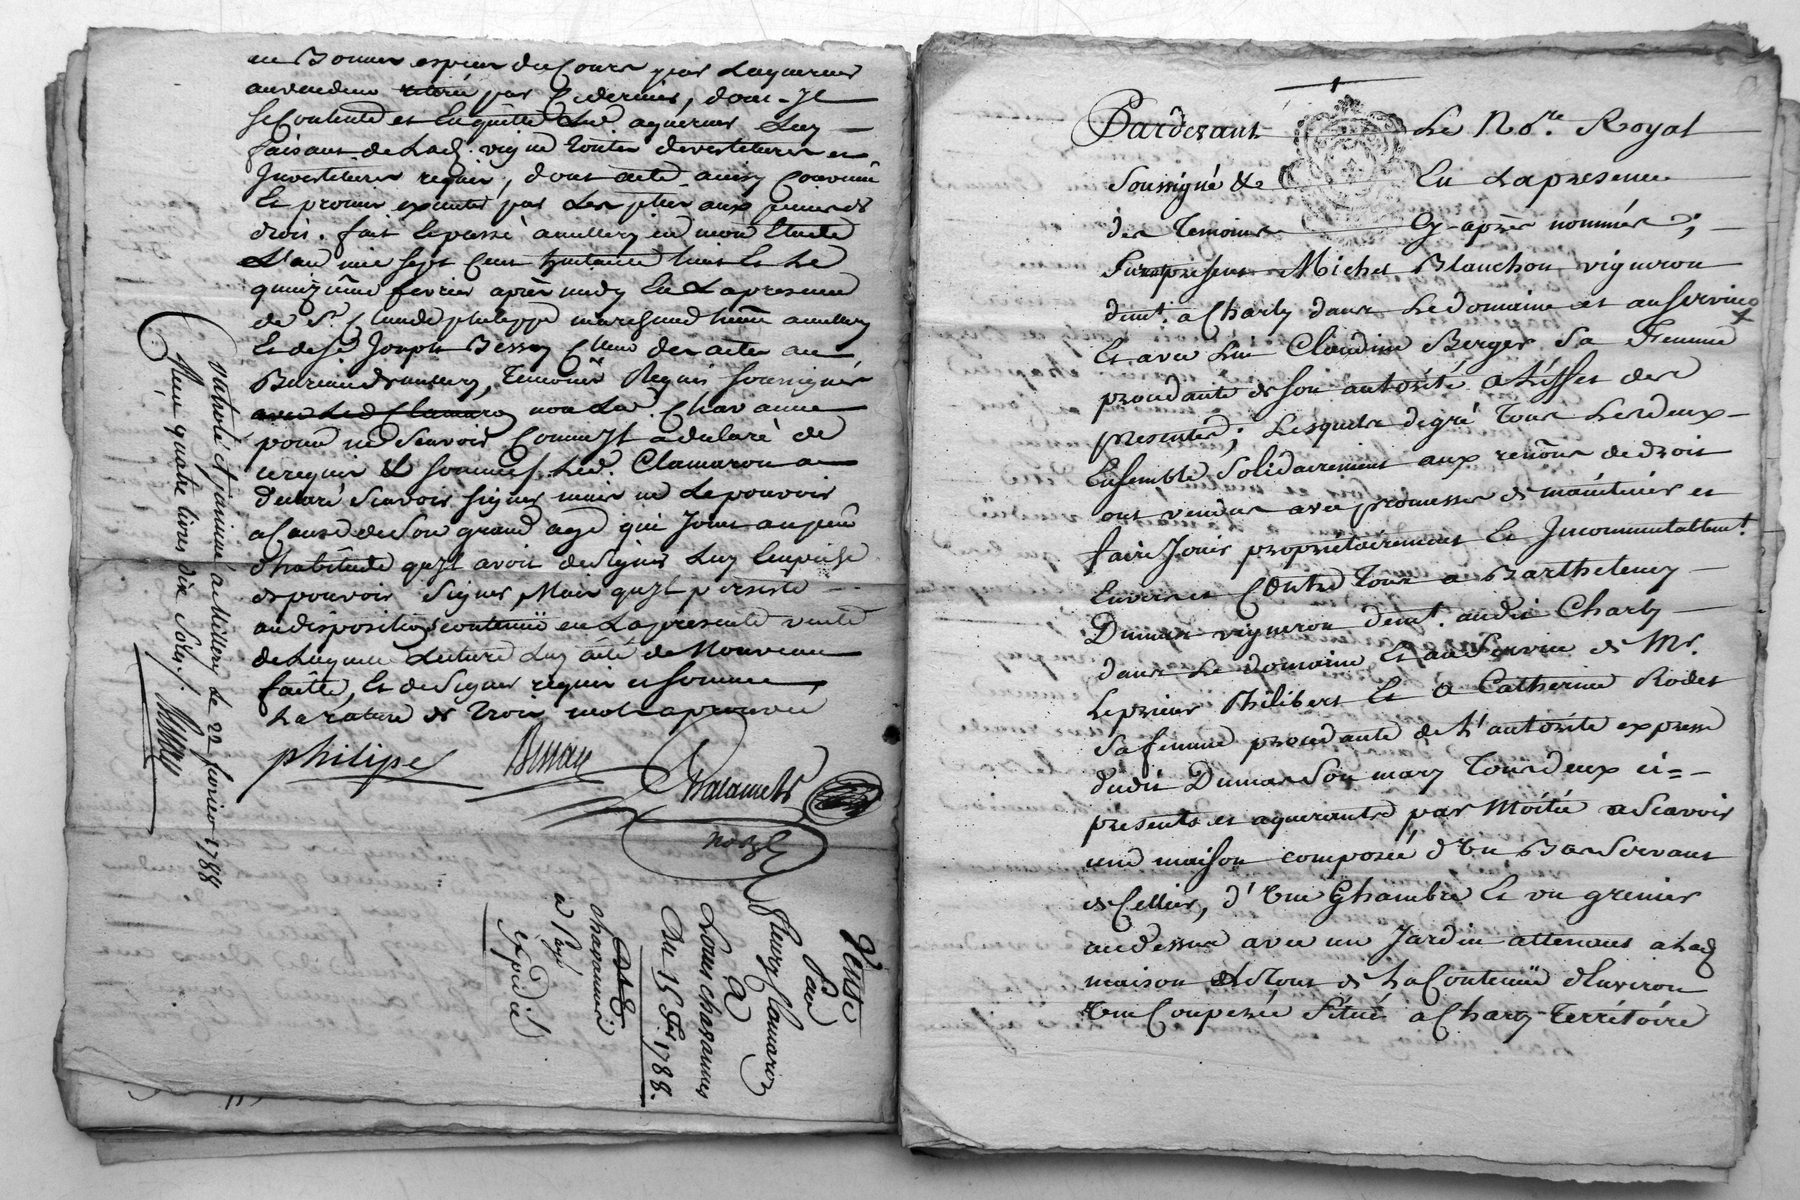 en Bonnes espèces du Cours par Laquereur
au vendeur par Ce dernier, dont Il
se Contente et En quitte Led. aquereur Luy
faisant de Lad. vigne Toutes devestitures et
Investitures requis, dont acte ainsy Convenu
Et promis executer par Les parties aux peines de
droit. fait Et passé a millery en mon Etude
L'an mil sept Cent huitante huit Et Le
quinzième fevrier après midy En La presence
de Sr. Claude philippe marchand a millery
Et de Sr. Joseph Bessay des actes au
Bureau de millery, Temoins Requis soussignés
non Led. Chavanne
pour ne Scavoir Comme Il a declaré de
ce requis Et sommé Led. Clamaron a
declaré Scavoir signer mais ne Le pouvoir
a Cause de Son grand age qui Joint au peu
d'habitude qu'Il avoit de Signer Luy Empeche
de pouvoir Signer, Mais qu'Il persiste
au dispositif contenu en La presente vente
de Laquelle Lecture Luy a été de Nouveau
faitte, Et de Signer requis et sommé
La rature de Trois mots aprouvée
philipe
Controlé et insinué a Millery Le 22 fevrier 1788
Reçu quatre livres dix Sols
Vente
Par
Fleury Clamaron
a
Louis chavannes
Du 15 1788.
chavannes
a Payé
Expedié
Pardevant Le No.re Royal
Soussigné & En La presence
des Temoins Cy-après nommés;
Furent présent Michel Blanchon vigneron
demt. a Charly dans Le domaine et au service
Et avec Lui Claudine Berger Sa Femme
procedante de son autorité a L'effet des
presentes; Lesquels de gré Tous Les deux
Ensemble Solidairement aux renons de droit
ont vendus avec promesse de maintenir et
faire Jouir proprietairement Et Incommutablemt.
Envers et Contre Tous a Barthelemy
Dumas vigneron demt. audit Charly
dans Le domaine Et au Service de Mr.
Le prieur Philibert Et a Catherine Rodet
Sa femme procedante de L'autorité expresse
dudit Dumas Son mary Tous deux ci=
présents et aquerants par Moitié a Scavoir
une maison composée d'Un Bas Servant
de Cellier, d'Une Chambre Et un grenier
au dessus avec un Jardin attenant a Lad.
maison de La Contenüe d'Environ
Une Couperée Situé a Charly Territoire